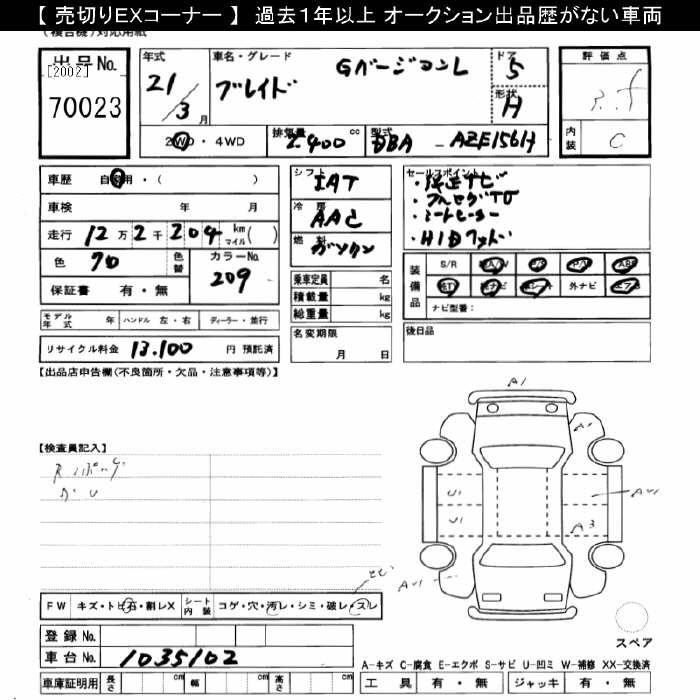 【 売切りEXコーナー 】 過去1年以上 オークション出品歴がない車両
(複合機)対応用紙
出品No.
[2002]
70023
年式
21/3月
車名・グレード
ブレイド GバージョンL
ドア 5
形状 H
評価点
内装 C
2WD・4WD
排気量 2400 cc
型式 DBA - AZE156H
車歴 自家用・( )
車検 年 月
走行 12万2千204 km マイル( )
色 70
色替
カラーNo. 209
保証書 有・無
シフト IAT
冷房 AAC
燃料 ガソリン
乗車定員 名
積載量 kg
総重量 kg
セールスポイント
・純正ナビ
・フルセグTV
・シートヒーター
・HIDフォグ
装備品
S/R A/W P/S P/W ABS
TV ナビ 革シート 外ナビ エアB
ナビ型番:
モデル年式 年 ハンドル 左・右 ディーラー・並行
名変期限 月 日
後日品
リサイクル料金 13,100 円 預託済
【出品店申告欄(不良箇所・欠品・注意事項等)】
【検査員記入】
A1
A1
U1
U1
A3
FW キズ・トビ石・割レX
シート内装 コゲ・穴・汚レ・シミ・破レ・スレ
登録No.
車台No. 1035102
車庫証明用 長さ cm 幅 cm 高さ cm
スペア
A-キズ C-腐食 E-エクボ S-サビ U-凹ミ W-補修 XX-交換済
工具 有・無 ジャッキ 有・無